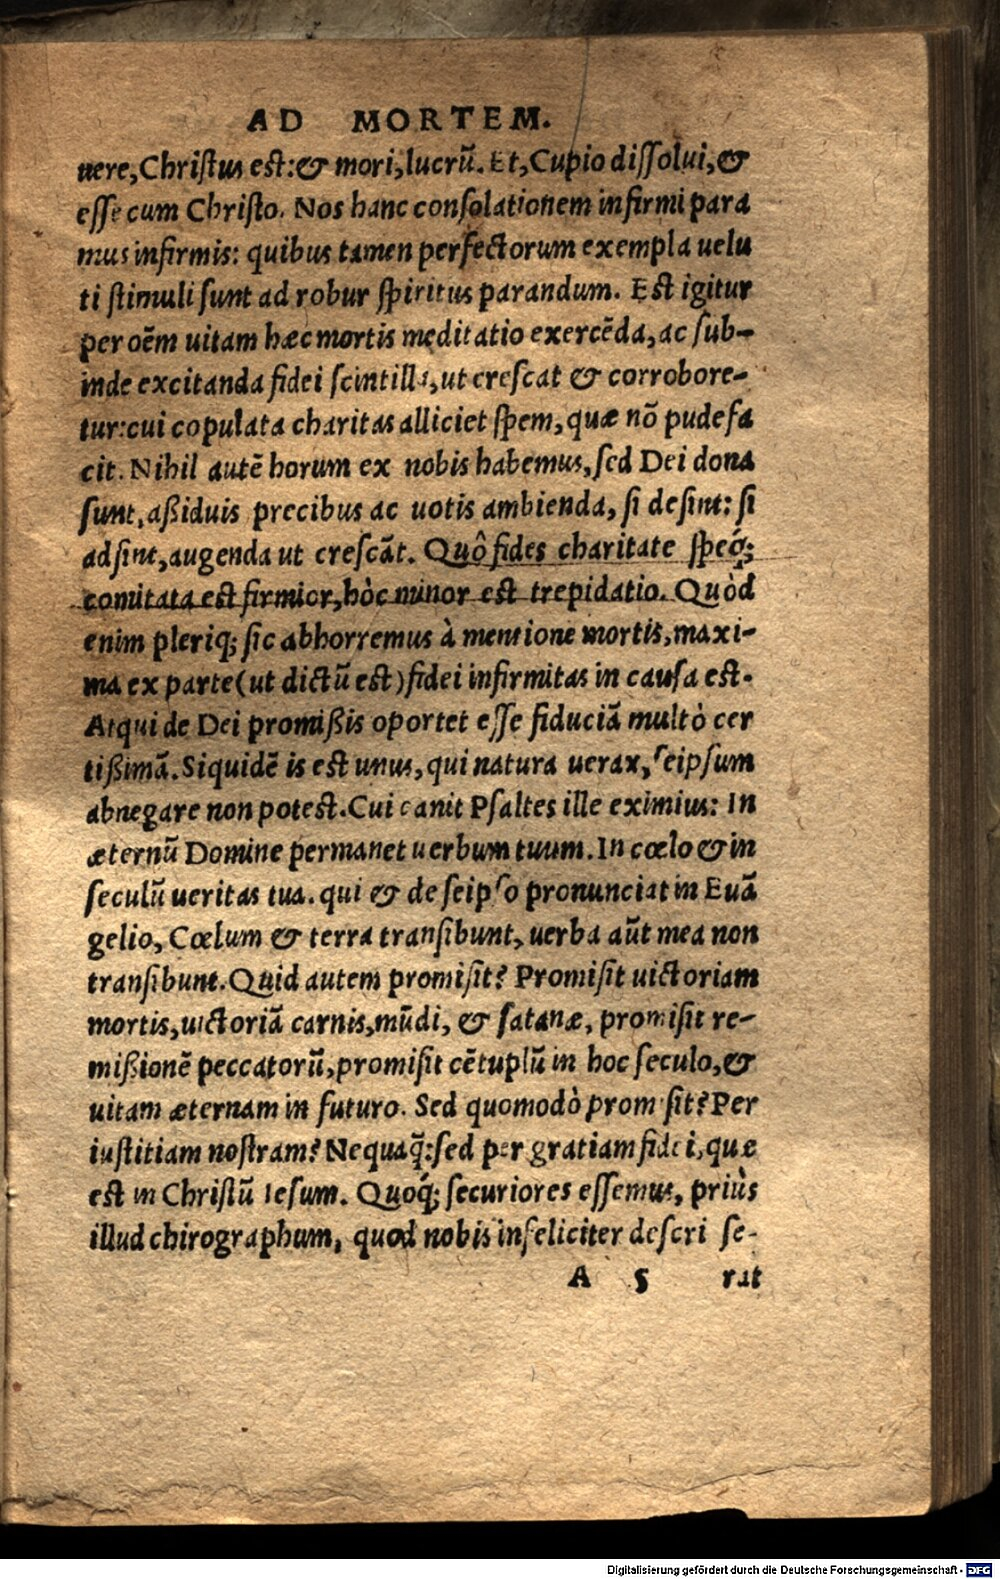 AD MORTEM.
uere, Christus est: & mori, lucrū. Et, Cupio dissolui, &
esse cum Christo. Nos hanc consolationem infirmi para
mus infirmis: quibus tamen perfectorum exempla uelu
ti stimuli sunt ad robur spiritus parandum. Est igitur
per oēm uitam hæc mortis meditatio exercēda, ac sub-
inde excitanda fidei scintilla, ut crescat & corrobore-
tur: cui copulata charitas alliciet spem, quæ nō pudefa
cit. Nihil autē horum ex nobis habemus, sed Dei dona
sunt, aßiduis precibus ac uotis ambienda, si desint: si
adsint, augenda ut crescāt. Quô fides charitate speq́;
comitata est firmior, hòc minor est trepidatio. Quòd
enim pleriq; sic abhorremus à mentione mortis, maxi-
ma ex parte (ut dictū est) fidei infirmitas in causa est.
Atqui de Dei promißis oportet esse fiduciā multò cer
tißimā. Siquidē is est unus, qui natura uerax, seipsum
abnegare non potest. Cui canit Psaltes ille eximius: In
æternū Domine permanet uerbum tuum. In cœlo & in
seculū ueritas tua. qui & de seipso pronunciat in Euā
gelio, Cœlum & terra transibunt, uerba aūt mea non
transibunt. Quid autem promisit? Promisit uictoriam
mortis, uictoriā carnis, mūdi, & satanæ, promisit re-
mißionē peccatorū, promisit cētuplū in hoc seculo, &
uitam æternam in futuro. Sed quomodò promisit? Per
iustitiam nostram? Nequaq̄: sed per gratiam fidei, quæ
est in Christū Iesum. Quoq́; securiores essemus, priùs
illud chirographum, quod nobis infeliciter descri se-
A 5 rat
Digitalisierung gefördert durch die Deutsche Forschungsgemeinschaft - DFG